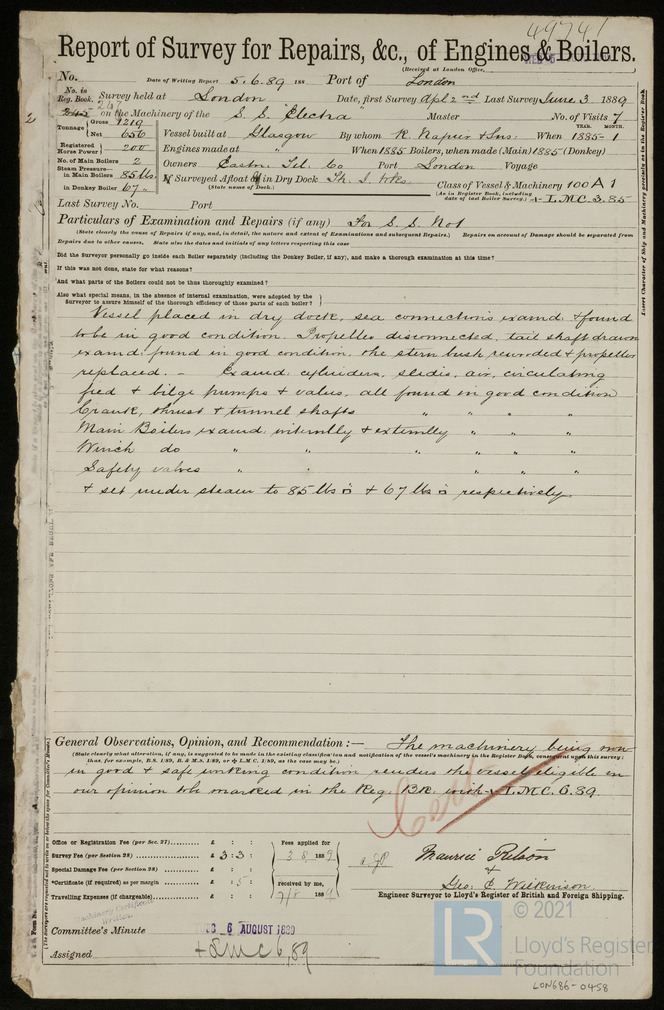 49741
Report of Survey for Repairs, &c., of Engines & Boilers.
(Received at London Office,
No. Date of Writing Report 5.6.89 188 Port of London
No. in Reg. Book. Survey held at London Date, first Survey Apl 2nd Last Survey June 3 1889
247 on the Machinery of the S. S. "Electra" Master No. of Visits 7
Tonnage Gross 1219
Net 656 Vessel built at Glasgow By whom R. Napier & Sons When 1885-1
YEAR. MONTH.
Registered Horse Power 200 Engines made at " When 1885 Boilers, when made (Main) 1885 (Donkey)
No. of Main Boilers 2 Owners Eastn. Tel. Co Port London Voyage
Steam Pressure— in Main Boilers 85 lbs If Surveyed Afloat or in Dry Dock Th. I. Wks.
(State name of Dock.)
in Donkey Boiler 67 " Class of Vessel & Machinery 100 A 1
(As in Register Book, including date of last Boiler Survey.) L.M.C. 3.85
Last Survey No. Port
Particulars of Examination and Repairs (if any) For S. S. No 1
(State clearly the cause of Repairs if any, and, in detail, the nature and extent of Examinations and subsequent Repairs.) Repairs on account of Damage should be separated from
Repairs due to other causes. State also the dates and initials of any letters respecting this case
Did the Surveyor personally go inside each Boiler separately (including the Donkey Boiler, if any), and make a thorough examination at this time?
If this was not done, state for what reasons?
And what parts of the Boilers could not be thus thoroughly examined?
Also what special means, in the absence of internal examination, were adopted by the
Surveyor to assure himself of the thorough efficiency of those parts of each boiler?
Vessel placed in dry dock, sea connections examd. & found
to be in good condition. Propeller disconnected, tail shaft drawn
examd. found in good condition, the stern bush rewooded & propeller
replaced. - Examd. cylinders, slides, air, circulating
feed & bilge pumps & valves, all found in good condition
Crank, thrust & tunnel shafts " " " "
Main Boilers examd. internally & externally " " "
Winch do " " " " "
Safety valves " " " " "
& set under steam to 85 lbs □" & 67 lbs □" respectively.
General Observations, Opinion, and Recommendation :— The machinery being now
(State clearly what alteration, if any, is suggested to be made in the existing classification and notification of the vessel's machinery in the Register Book, consequent upon this survey;
thus, for example, B.S. 1/89, B. & M.S. 1/89, or ✠ L.M.C. 1/89, as the case may be.)
in good & safe working condition renders the vessel eligible in
our opinion to be marked in the Reg. Bk. with L.M.C. 6.89.
Office or Registration Fee (per Sec. 27) £ : :
Survey Fee (per Section 28) £ 3 : 3 :
Special Damage Fee (per Section 28) £ : :
*Certificate (if required) as per margin £ : 5 :
Travelling Expenses (if chargeable) £ : :
Fees applied for
188
received by me,
188
Maurice Pelson
&
Geo. E. Wilkinson
Engineer Surveyor to Lloyd's Register of British and Foreign Shipping.
Machinery Certificate Written.
Committee's Minute TUES 6 AUGUST 1889
Assigned + L M C 6,89
LR
© 2021
Lloyd's Register
Foundation
LON686-0458